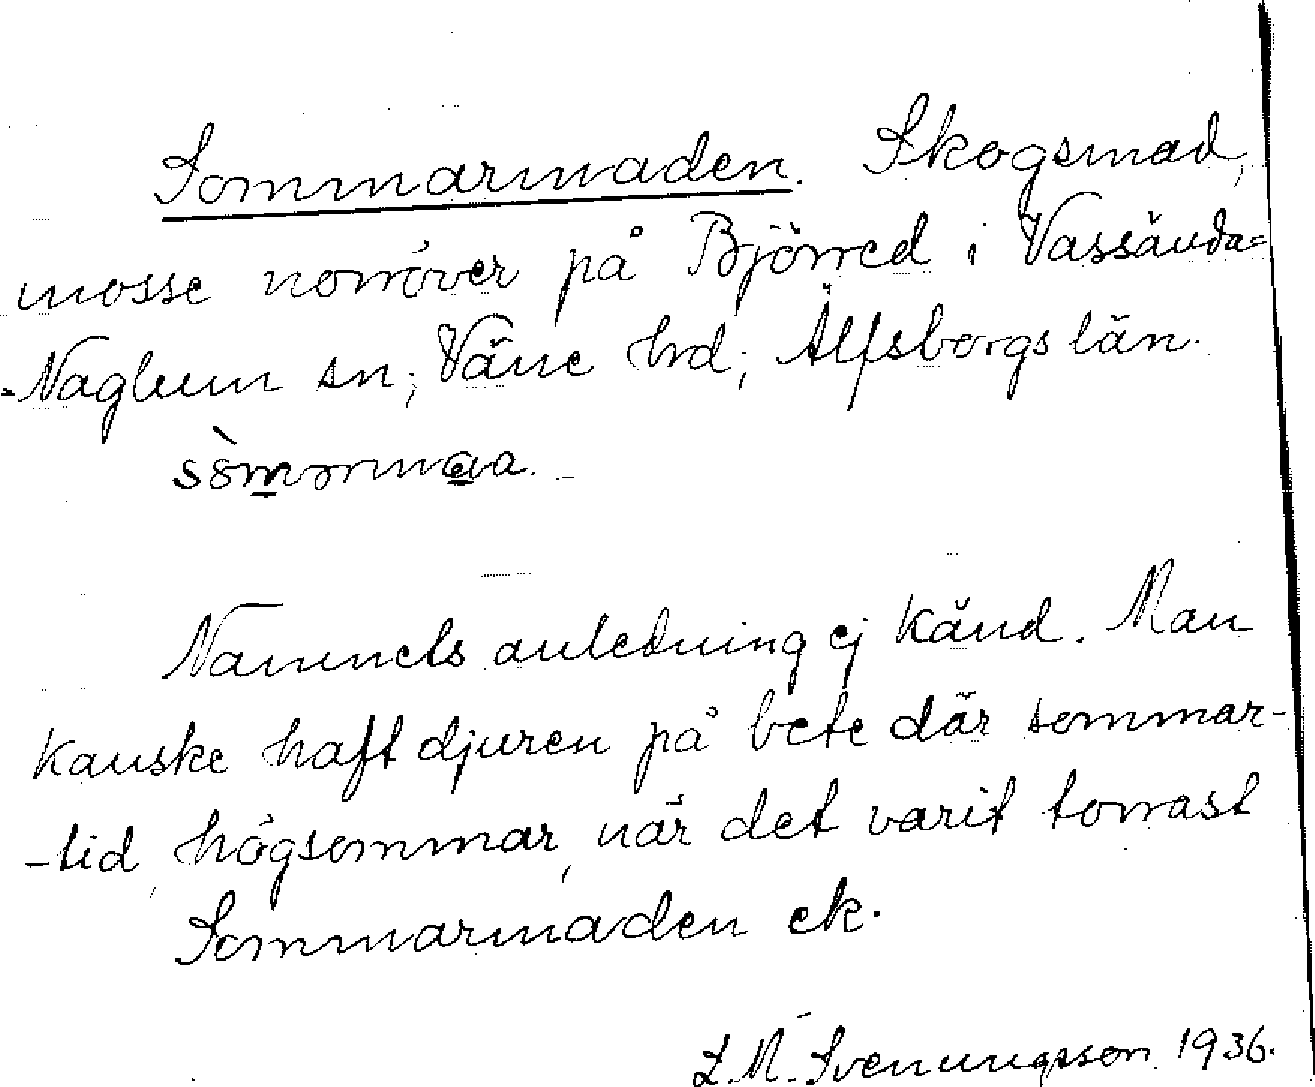 Sommarmaden. Skogsmad,
mosse norröver på Björred i Vassända=
-Naglum sn; Väne hd; Älfsborgs län.
Nammets anledning ej känd. Man
kanske haft djuren på bete där sommar-
-tid, högsommar, när det varit torrast
Sommarmaden ek.
L. M. Svenungsson 1936.